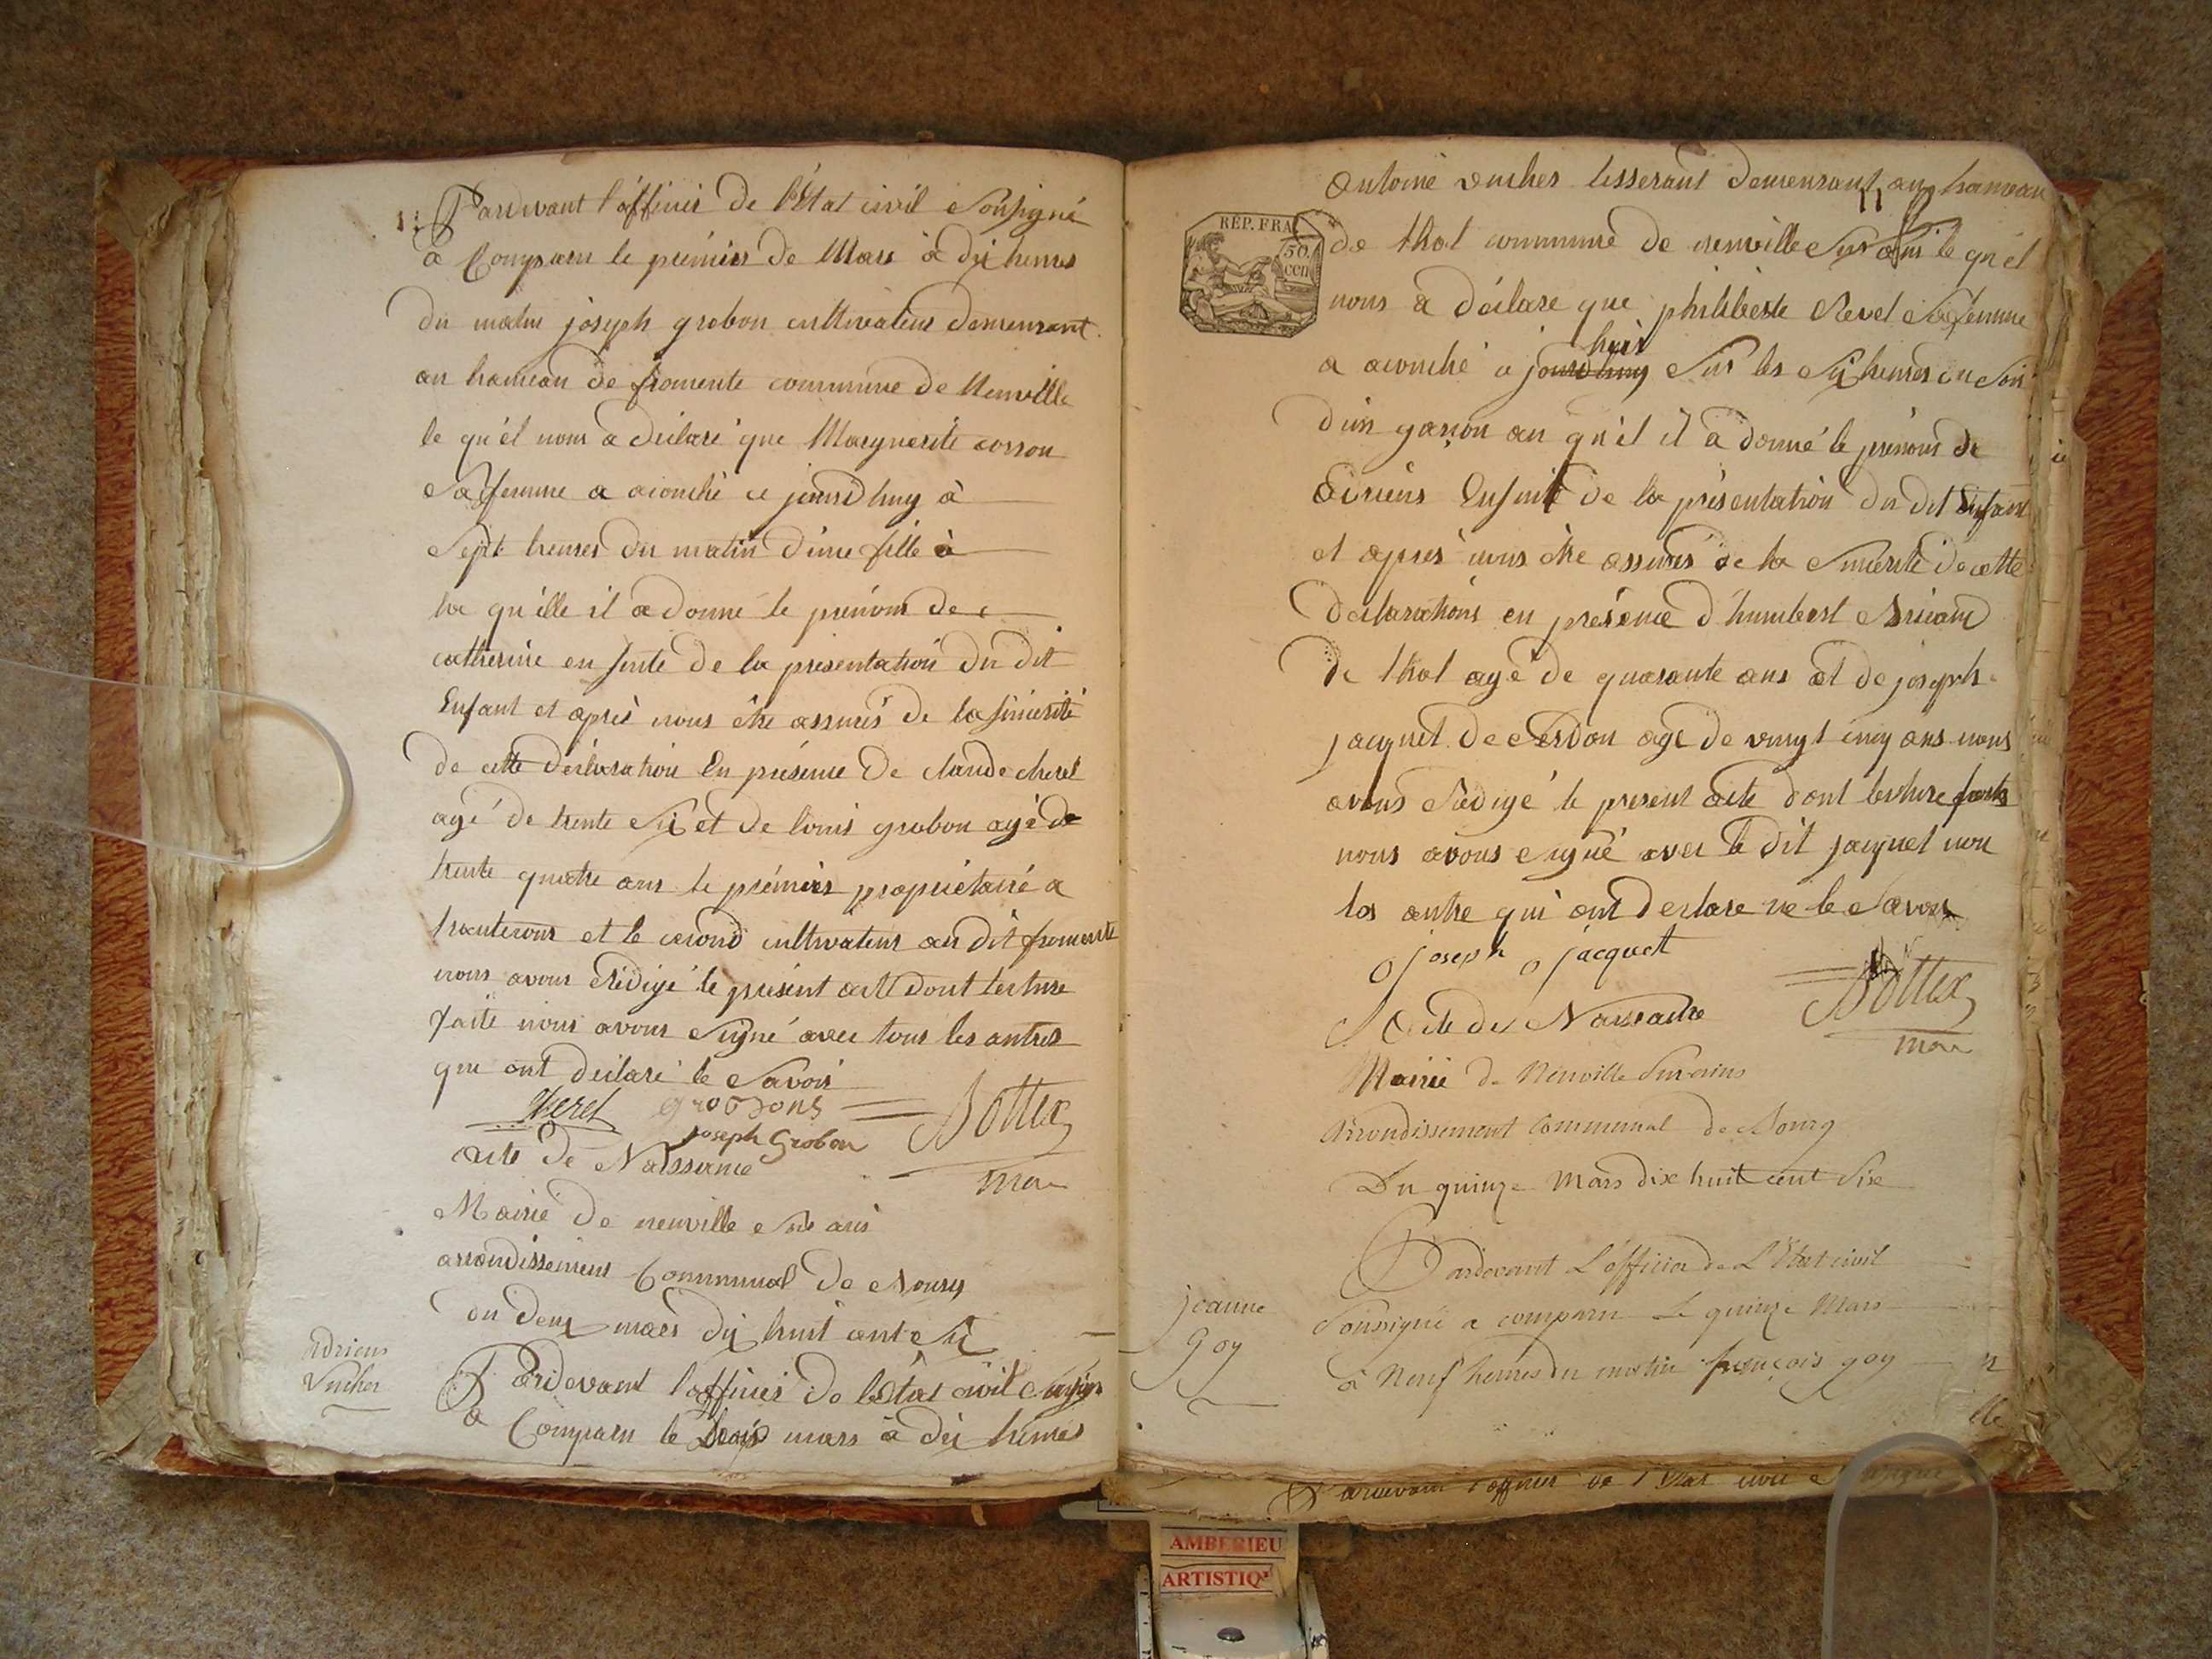 Pardvant l'officier de l'Etat civil Sousigné
a Comparu le prémier de Mars à dix heures
du matin joseph grobon cultivateur demeurant
au hameau de fromente commune de Neuville
le qu'él nous a déclaré que Marguerite
Sa femme a acouché ce jourd'huy à
Sept heures du matin d'une fille à
la qu'ille il a donné le prénom de
catherine en suite de la présentation du dit
Enfant et aprés nous étre assurés de la sincérité
de cette déclaration En présence de claude cheret
agé de trente Six et de louis grobon agé de
trente quatre ans le prémier propriétaire a
et le cecond cultivateur au dit fromente
nous avons Rédigé le présent acte dont lecture
faite nous avons Signé avec tous les autres
qui ont déclaré le Savoir
Cheret Bottex
joseph Grobon
acte de Naissance mar
Mairie de neuville Sur ain
arrondissement Communal de Bourg
du deux mars dix huit cent Six
Adrien
Vucher
Pardevant l'officier de l'Etat civil
a Comparu le trois mars à dix heures
REP. FRA.
50.
cen
Antoine vucher tisserant demeurant au hameau
de thol commune de neuville Sur ain le qu'el
nous a déclare que philiberte Revel Sa femme
hier
a acouché a jourdhuy Sur les Six heures du Soir
d'un garçon au qu'el il a donné le prénom de
Adriens Ensuite de la présentation du dit Enfant
et aprés nous étre assurés de la Sincerité de cette
déclaration en présence d'humbert
de thol agé de quarante ans et de joseph
jacquet de Cerdon agé de vingt cinq ans nous
avons Rédigé le present acte dont lecture faite
nous avons Signé avec le dit jacquet non
les autre qui ont déclare ne le Savoir
joseph jacquet
Bottex
Acte de Naissance
mar
Mairie de Neuville Sur ains
Arrondissement Communal de Bourg
Du quinze Mars dix huit cent Six
Pardevant L'officier de L'Etat civil
jeanne
Goy
Soussigné a comparu Le quinze Mars
à Neuf heures du matin françois goy
Pardevant l'officier de l'Etat civil
AMBERIEU
ARTISTIQ